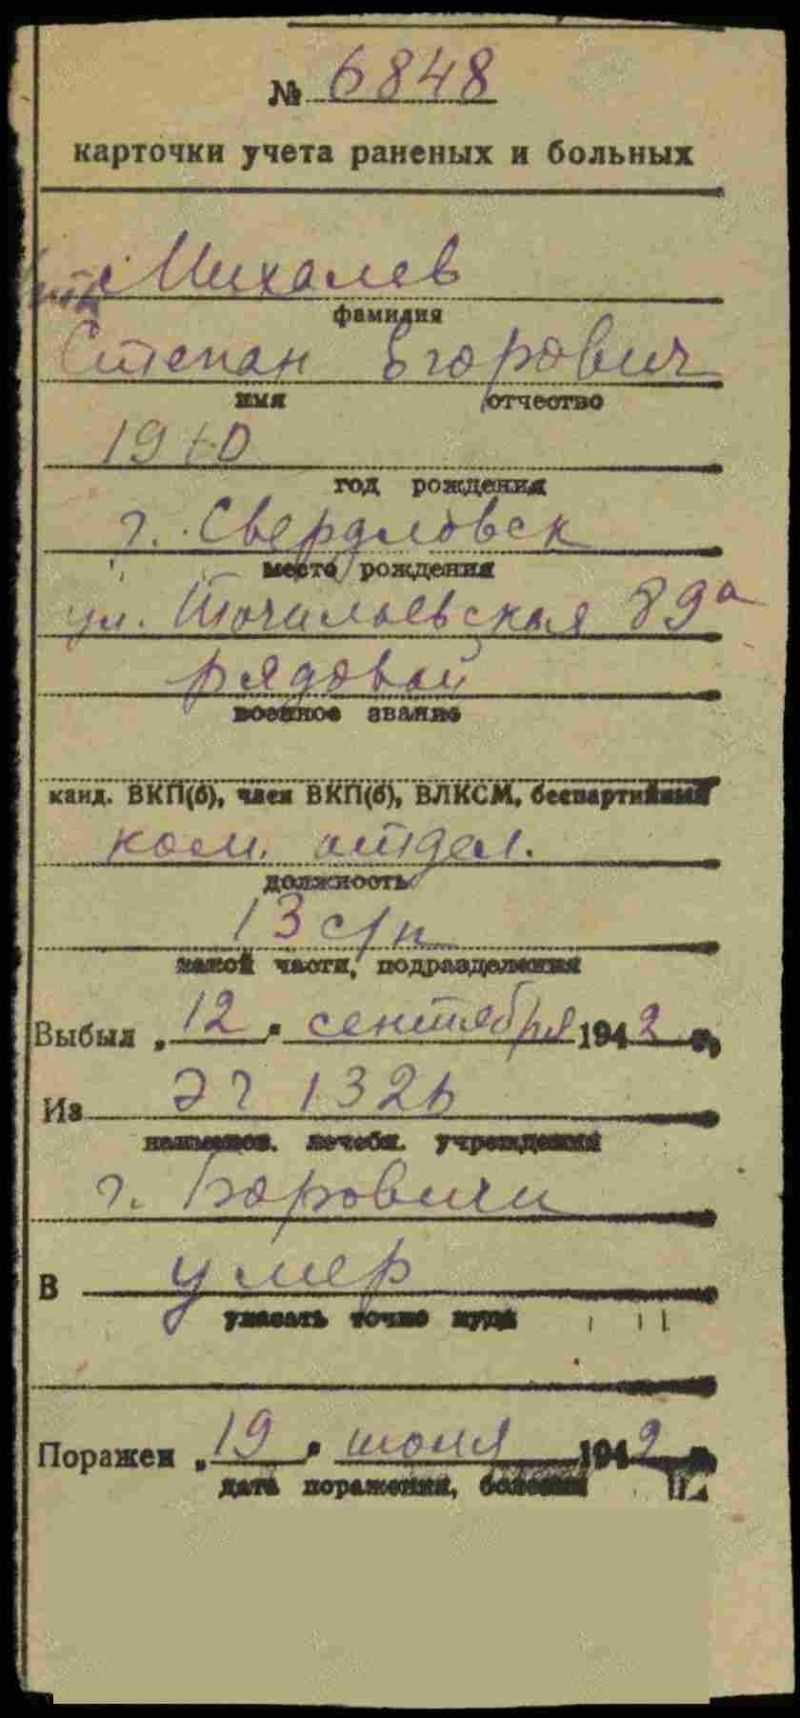 № 6848
карточки учета раненых и больных
Михалев
фамилия
Степан Егорович
имя отчество
19
год рождения
г. Свердловск
место рождения
ул. 89а
рядовой
военное звание
канд. ВКП(б), член ВКП(б), ВЛКСМ, беспартийный
ком. отдел.
должность
13 с/п
какой части, подразделения
Выбыл „12" сентября 1942 г.
Из ЭГ 1326
наименов. лечебн. учреждения
г. Боровичи
В умер
указать точно куда
Поражен „19" июля 1942 г.
дата поражения, болезни